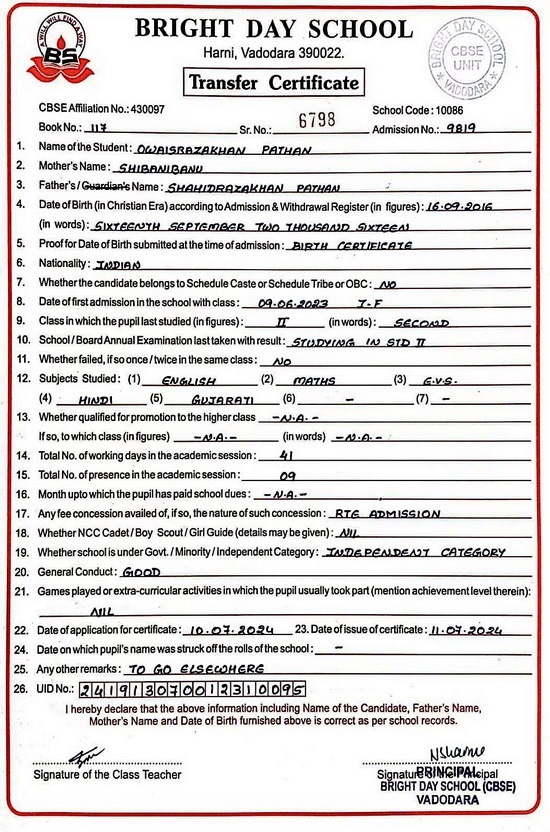 A WILL WILL FIND A WAY
BS
BRIGHT DAY SCHOOL
Harni, Vadodara 390022.
BRIGHT DAY SCHOOL
CBSE
UNIT
VADODARA
Transfer Certificate
CBSE Affiliation No.: 430097 School Code : 10086
Book No.: 117 Sr. No.: 6798 Admission No.: 9819
1. Name of the Student : OWAISRAZAKHAN PATHAN
2. Mother's Name : SHIBANIBANU
3. Father's / Guardian's Name : SHAHIDRAZAKHAN PATHAN
4. Date of Birth (in Christian Era) according to Admission & Withdrawal Register (in figures) : 16.09.2016
(in words) : SIXTEENTH SEPTEMBER TWO THOUSAND SIXTEEN
5. Proof for Date of Birth submitted at the time of admission : BIRTH CERTIFICATE
6. Nationality : INDIAN
7. Whether the candidate belongs to Schedule Caste or Schedule Tribe or OBC : NO
8. Date of first admission in the school with class : 09.06.2023 I-F
9. Class in which the pupil last studied (in figures) : II (in words) : SECOND
10. School / Board Annual Examination last taken with result : STUDYING IN STD II
11. Whether failed, if so once / twice in the same class : NO
12. Subjects Studied : (1) ENGLISH (2) MATHS (3) E.V.S.
(4) HINDI (5) GUJARATI (6) - (7) -
13. Whether qualified for promotion to the higher class -N.A.-
If so, to which class (in figures) -N.A.- (in words) -N.A.-
14. Total No. of working days in the academic session : 41
15. Total No. of presence in the academic session : 09
16. Month upto which the pupil has paid school dues : -N.A.-
17. Any fee concession availed of, if so, the nature of such concession : RTE ADMISSION
18. Whether NCC Cadet / Boy Scout / Girl Guide (details may be given) : NIL
19. Whether school is under Govt. / Minority / Independent Category : INDEPENDENT CATEGORY
20. General Conduct : GOOD
21. Games played or extra-curricular activities in which the pupil usually took part (mention achievement level therein) :
NIL
22. Date of application for certificate : 10.07.2024 23. Date of issue of certificate : 11.07.2024
24. Date on which pupil's name was struck off the rolls of the school : -
25. Any other remarks : TO GO ELSEWHERE
26. UID No.: 241913070012310095
I hereby declare that the above information including Name of the Candidate, Father's Name,
Mother's Name and Date of Birth furnished above is correct as per school records.
Signature of the Class Teacher Signature of the Principal
PRINCIPAL
BRIGHT DAY SCHOOL (CBSE)
VADODARA